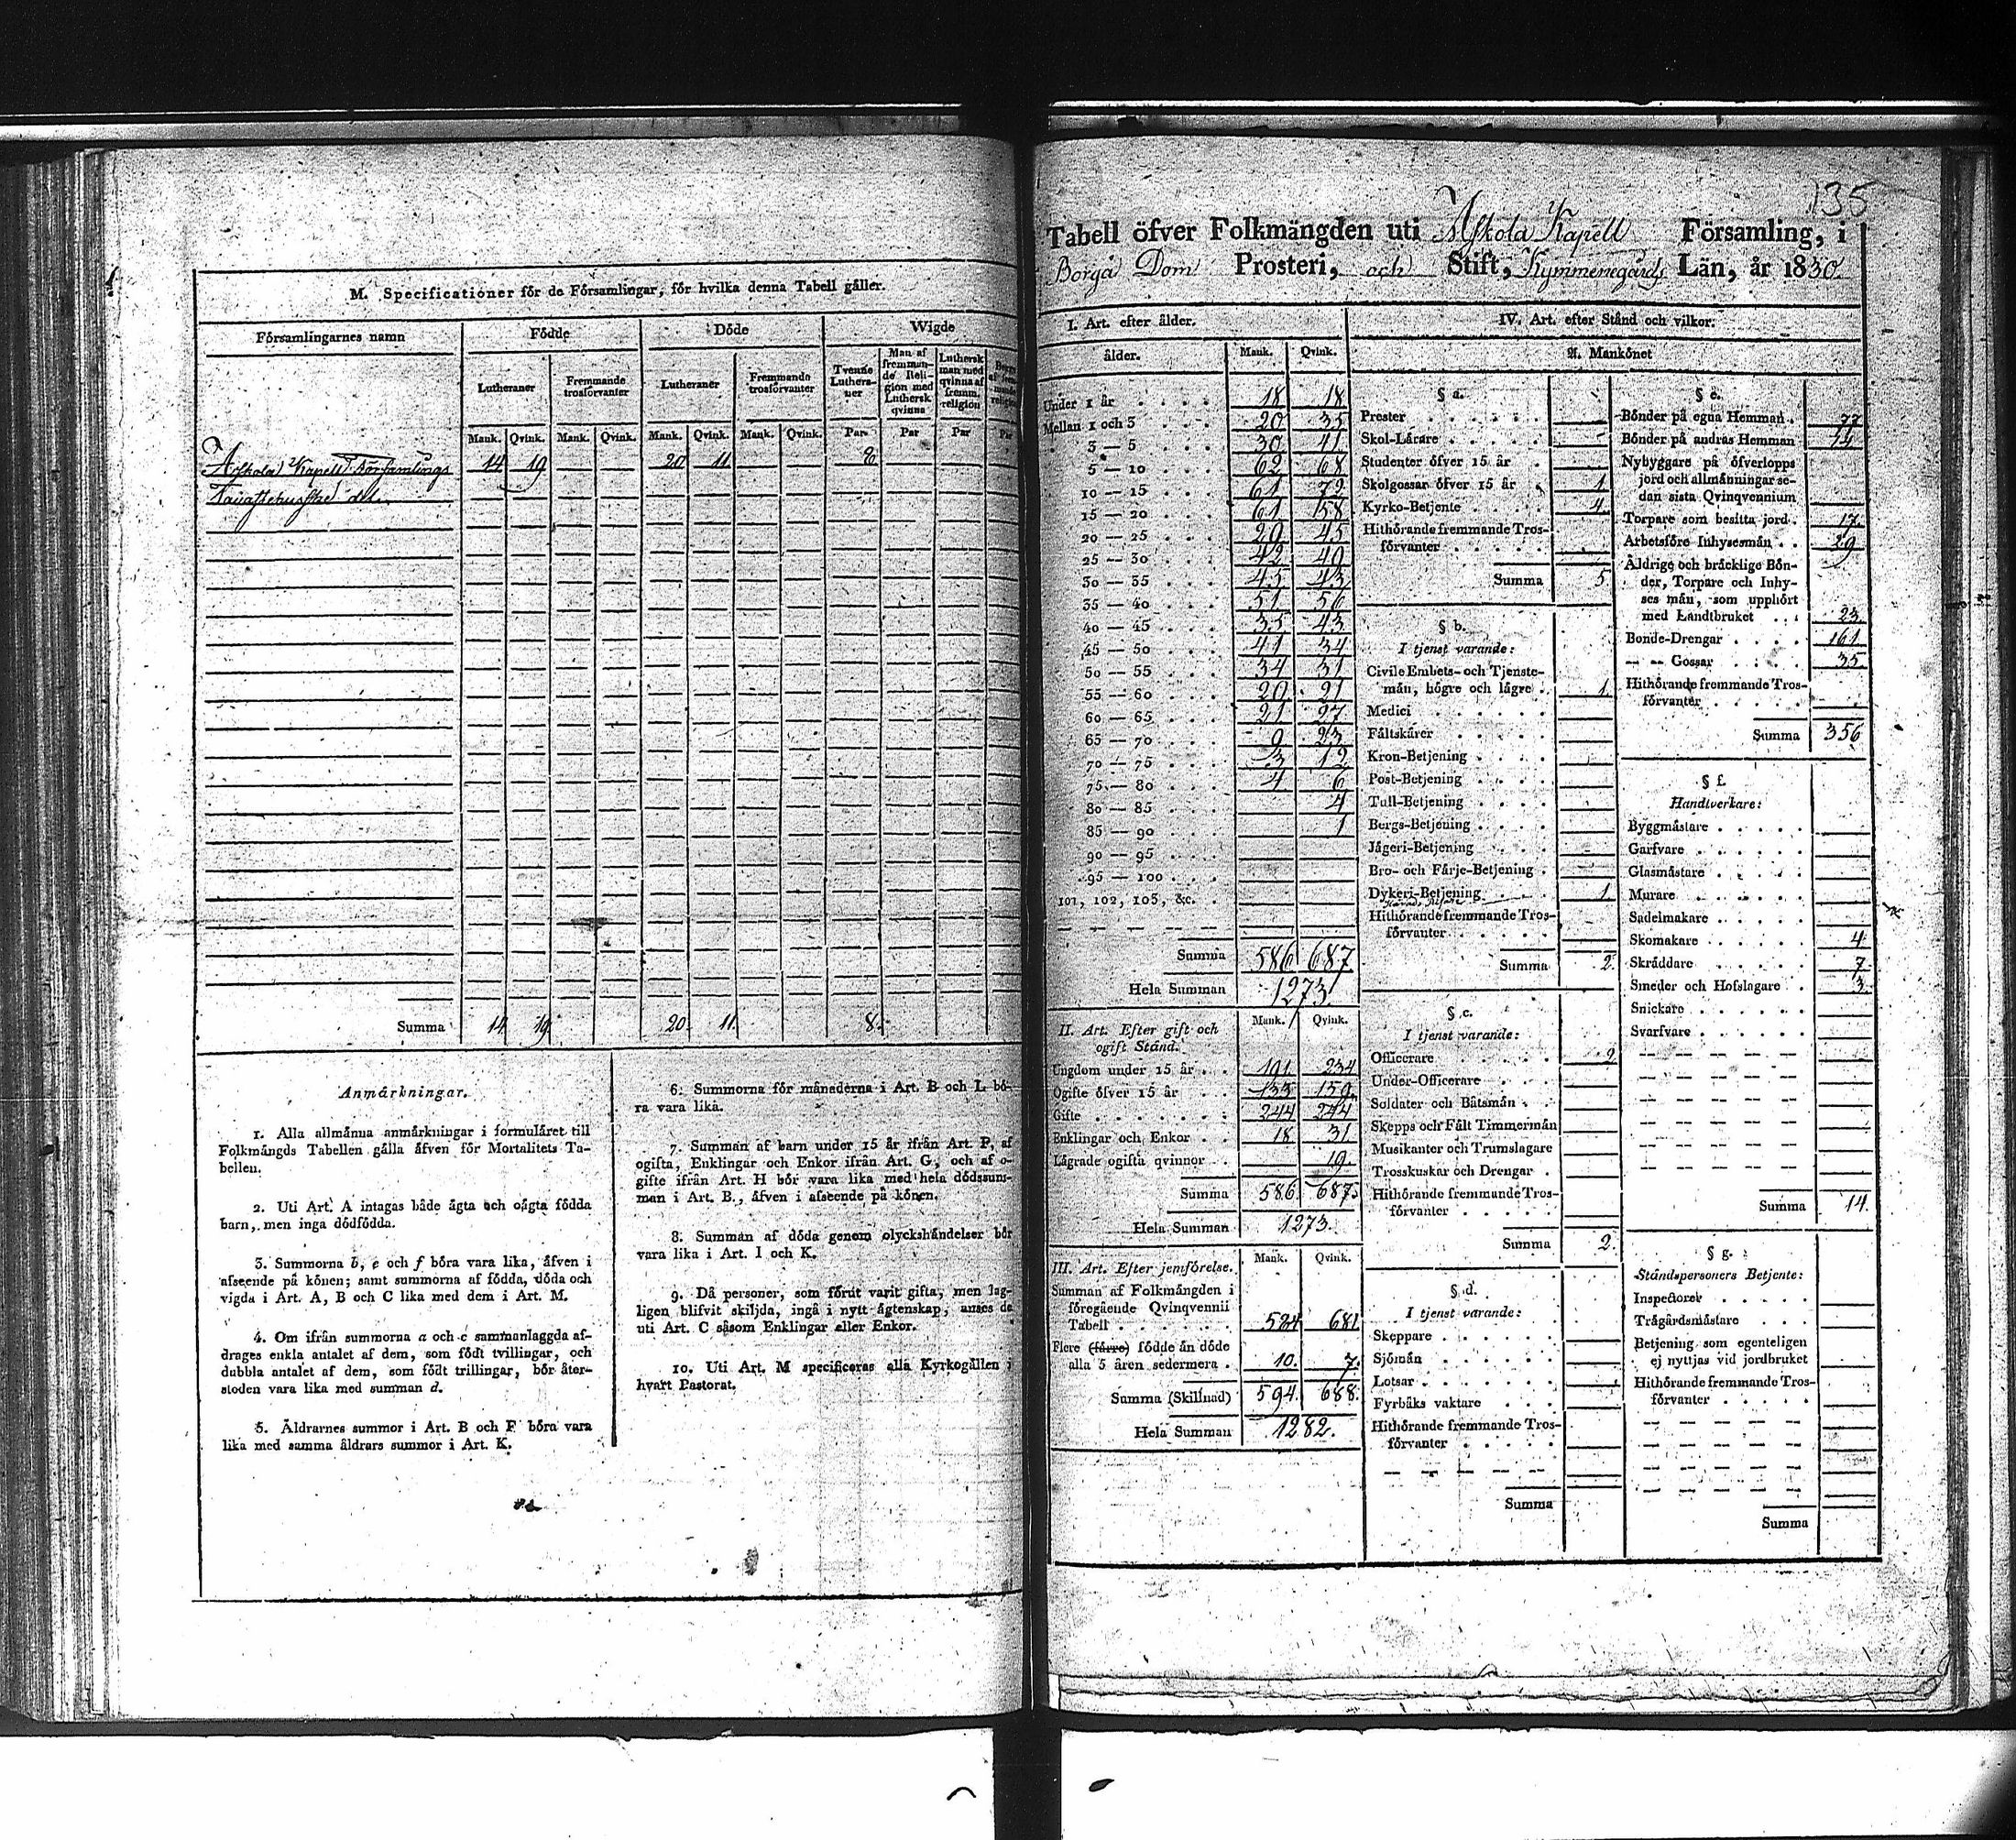 M. Specificationer för de Församlingar, för hvilka denna Tabell gäller.
Församlingarnes namn
Födde
Döde
Wigde
Lutheraner
Fremmande trosförvanter
Lutheraner
Fremmande trosförvanter
Tvenne Luthera-ner
Man af fremman-de Reli-gion med Luthersk qvinna
Luthersk man med qvinna af fremm. religion
Mank. Qvink. Mank. Qvink. Mank. Qvink. Mank. Qvink. Par Par Par
Askola Kapell Församlings 14 19 20 11 8
Tavastehuske del.
Summa 14 19. 20. 11. 8.
Anmärkningar.
1. Alla allmänna anmärkningar i formuläret till
Folkmängds Tabellen gälla äfven för Mortalitets Ta-
bellen.
2. Uti Art. A intagas både ägta och oägta födda
barn, men inga dödfödda.
3. Summorna b, e och f böra vara lika, äfven i
afseende på könen; samt summorna af födda, döda och
vigda i Art. A, B och C lika med dem i Art. M.
4. Om ifrån summorna a och c sammanlaggda af-
drages enkla antalet af dem, som födt tvillingar, och
dubbla antalet af dem, som födt trillingar, bör åter-
stoden vara lika med summan d.
5. Äldrarnes summor i Art. B och F böra vara
lika med samma äldrars summor i Art. K.
6. Summorna för månaderna i Art. B och L bö-
ra vara lika.
7. Summan af barn under 15 år ifrån Art. F, af
ogifta, Enklingar och Enkor ifrån Art. G, och af o-
gifte ifrån Art. H bör vara lika med hela dödssum-
man i Art. B., äfven i afseende på könen.
8. Summan af döda genom olyckshändelser bör
vara lika i Art. I och K.
9. Då personer, som förut varit gifta, men lag-
ligen blifvit skiljda, ingå i nytt ägtenskap, anses de
uti Art. C såsom Enklingar eller Enkor.
10. Uti Art. M specificeras alla Kyrkogällen i
hvart Pastorat.
135
Tabell öfver Folkmängden uti Askola Kapell Församling, i
Borgå Dom Prosteri, och Stift, Kymmenegårds Län, år 1830.
I. Art. efter ålder.
ålder. Mank. Qvink.
Under 1 år 18 18
Mellan 1 och 3 20 35
3 — 5 30 41
5 — 10 62 68
10 — 15 61 72
15 — 20 61 58
20 — 25 29 45
25 — 30 42 49
30 — 35 45 43
35 — 40 51 56
40 — 45 35 43
45 — 50 41 34
50 — 55 34 31
55 — 60 20 21
60 — 65 21 27
65 — 70 9 23
70 — 75 3 12
75 — 80 4 6
80 — 85 4
85 — 90 1
90 — 95
95 — 100
101, 102, 103, &c.
Summa 586 687
Hela Summan 1273
II. Art. Efter gift och ogift Stånd. Mank. Qvink.
Ungdom under 15 år 191 234
Ogifte öfver 15 år 133 159
Gifte 244 244
Enklingar och Enkor 18 31
Lägrade ogifta qvinnor 19.
Summa 586 687.
Hela Summan 1273.
III. Art. Efter jemförelse. Mank. Qvink.
Summan af Folkmängden i
föregående Qvinqvennii
Tabell 584 681
Flere (färre) födde än döde
alla 5 åren sedermera 10. 7.
Summa (Skillnad) 594. 688.
Hela Summan 1282.
IV. Art. efter Stånd och vilkor.
A. Mankönet
§ a.
Prester
Skol-Lärare
Studenter öfver 15 år
Skolgossar öfver 15 år 1.
Kyrko-Betjente 4.
Hithörande fremmande Tros-
förvanter
Summa 5
§ b.
I tjenst varande:
Civile Embets- och Tjenste-
män, högre och lägre 1.
Medici
Fältskärer
Kron-Betjening
Post-Betjening
Tull-Betjening
Bergs-Betjening
Jägeri-Betjening
Bro- och Färje-Betjening
Dykeri-Betjening 1.
Hithörande fremmande Tros-
förvanter
Summa 2.
§ c.
I tjenst varande:
Officerare 2
Under-Officerare
Soldater och Båtsmän
Skepps och Fält Timmermän
Musikanter och Trumslagare
Trosskuskar och Drengar
Hithörande fremmande Tros-
förvanter
Summa 2.
§ d.
I tjenst varande:
Skeppare
Sjömän
Lotsar
Fyrbåks vaktare
Hithörande fremmande Tros-
förvanter
Summa
§ e.
Bönder på egna Hemman 77
Bönder på andras Hemman 14
Nybyggare på öfverlopps
jord och allmänningar se-
dan sista Qvinqvennium
Torpare som besitta jord 17.
Arbetsföre Inhysesmän 29
Äldrige och bräcklige Bön-
der, Torpare och Inhy-
ses män, som upphört
med Landtbruket 23.
Bonde-Drengar 161
— — Gossar 35.
Hithörande fremmande Tros-
förvanter
Summa 356
§ f.
Handtverkare:
Byggmästare
Garfvare
Glasmästare
Murare
Sadelmakare
Skomakare 4
Skräddare 7.
Smeder och Hofslagare 3.
Snickare
Svarfvare
Summa 14.
§ g.
Ståndspersoners Betjente:
Inspectorer
Trägårdsmästare
Betjening som egenteligen
ej nyttjas vid jordbruket
Hithörande fremmande Tros-
förvanter
Summa